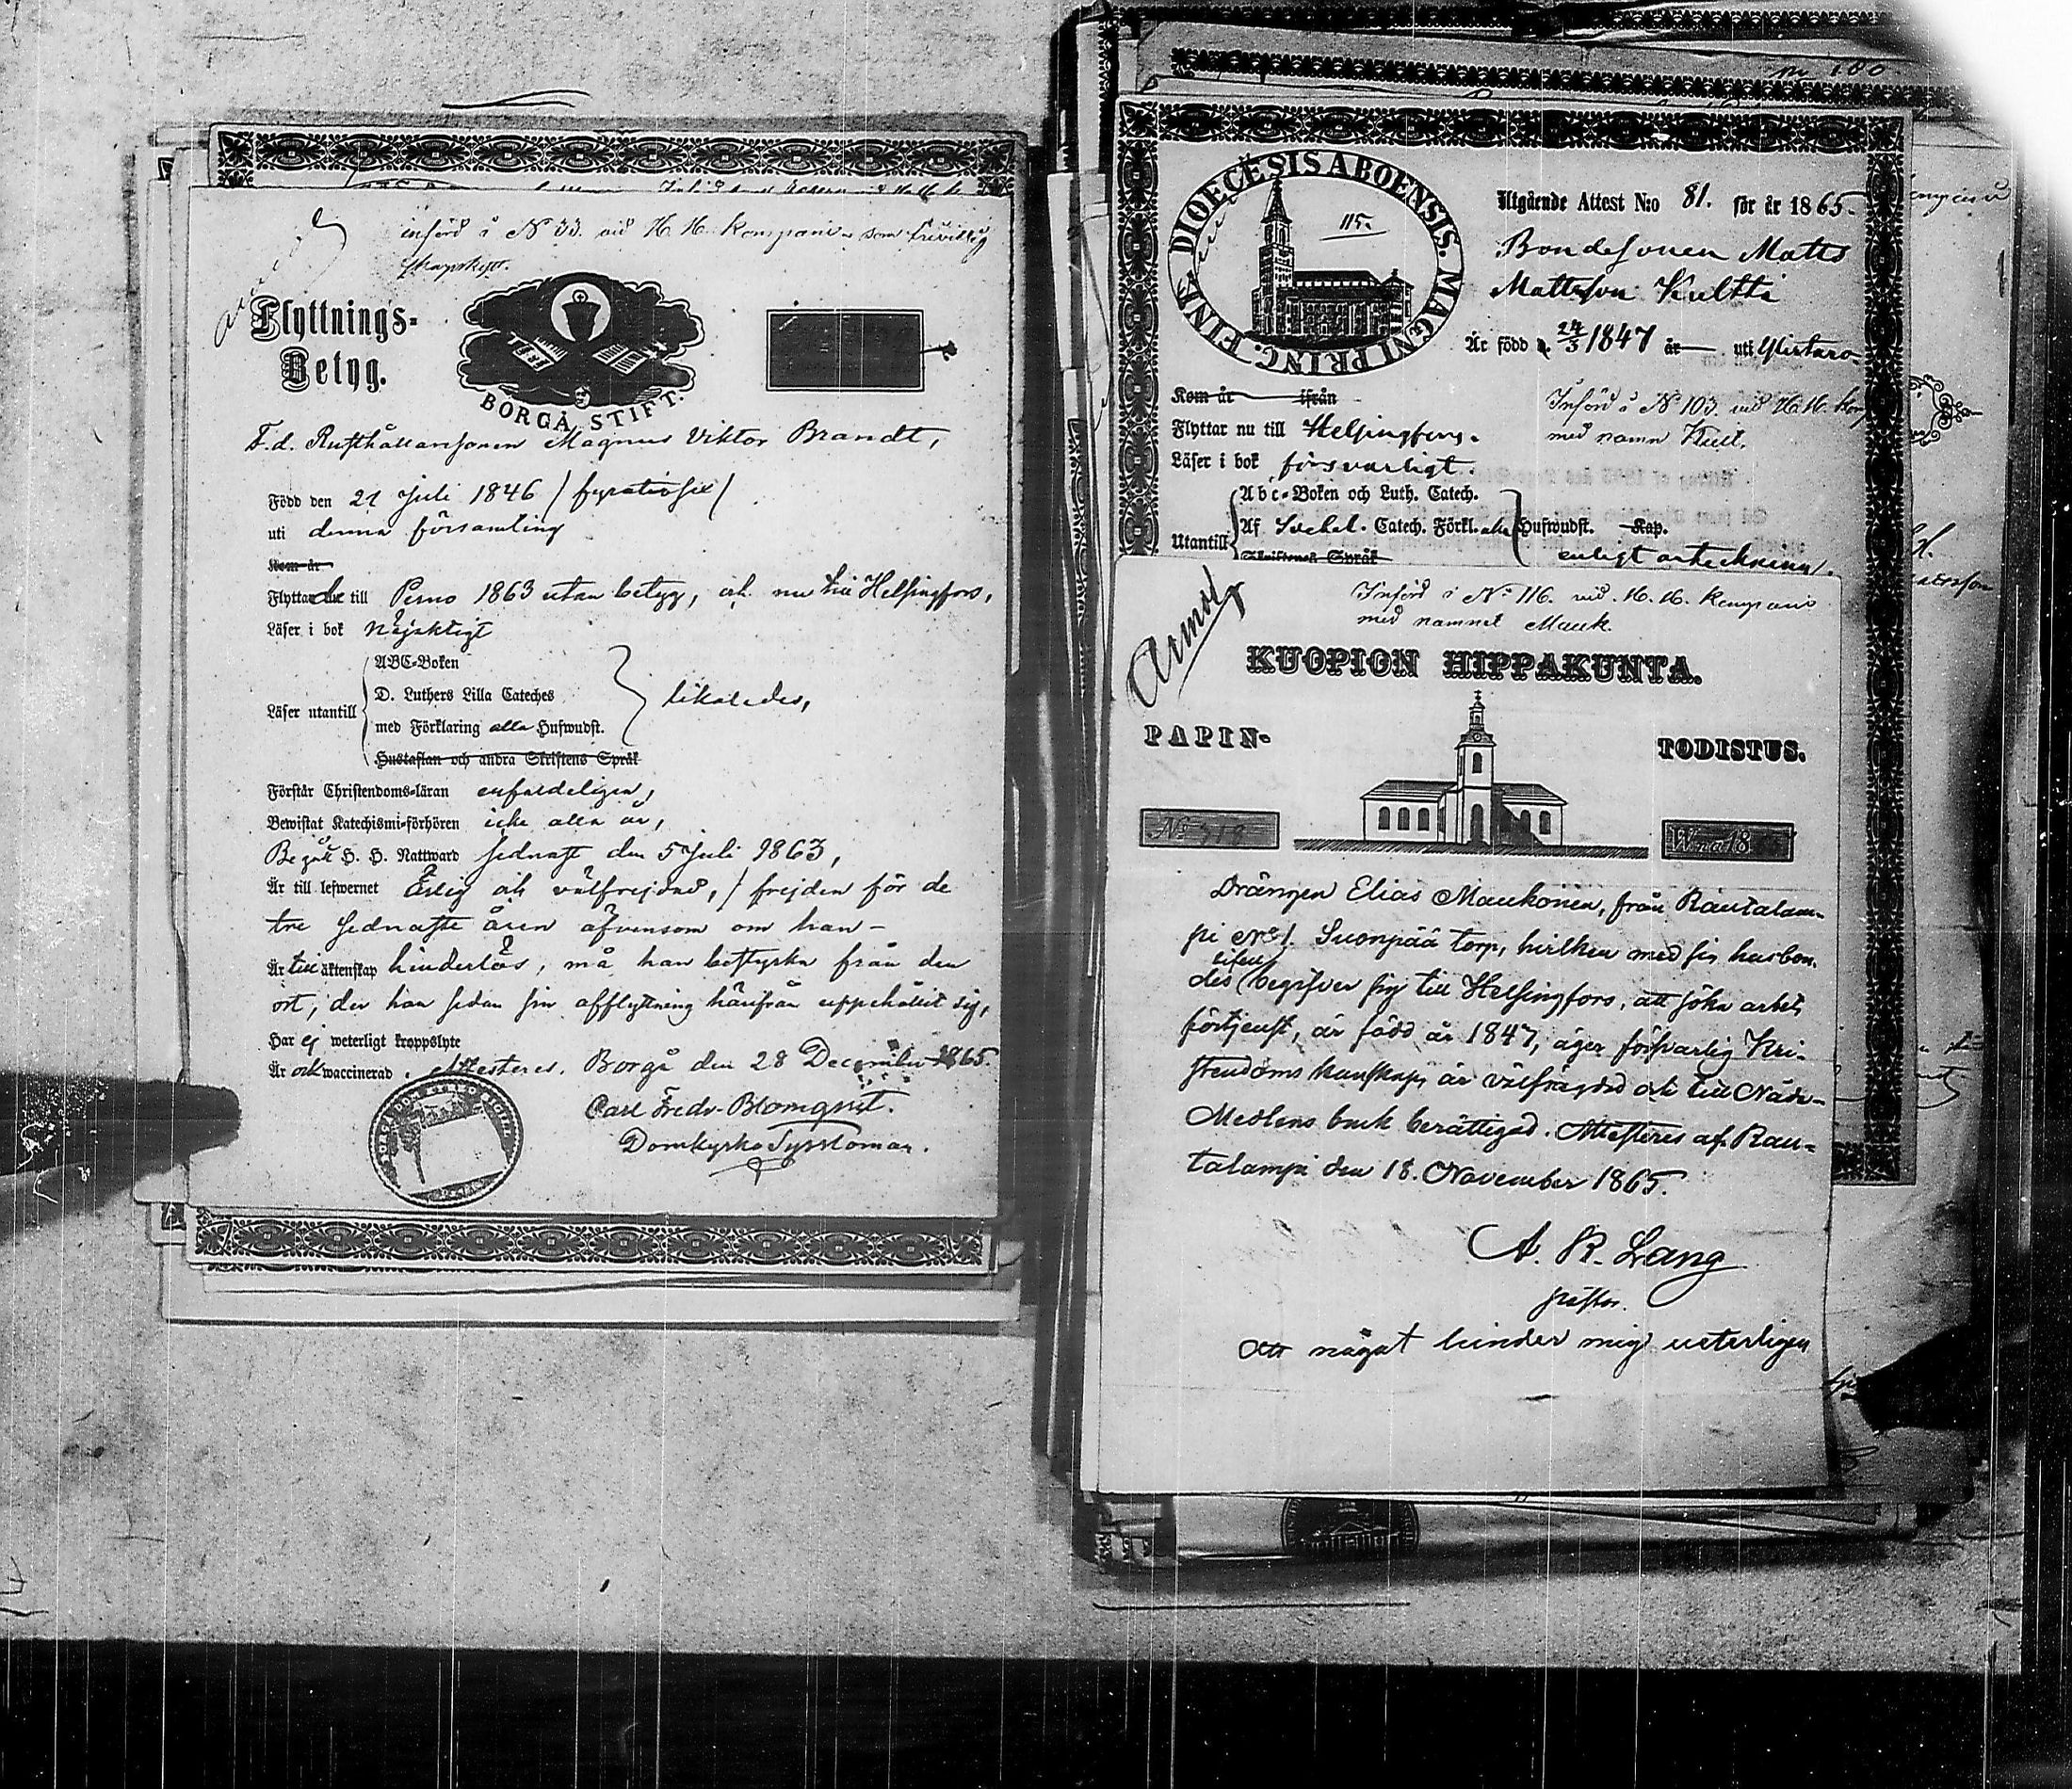 införd å N 33. vid H. H. kompani som frivillig
skarpskytt.
Flyttnings-
Betyg.
BORGÅ STIFT.
F.d. Rusthållaresonen Magnus Viktor Brandt,
Född den 21 Juli 1846 / fyratiosex /
uti denna församling
Kom år
Flyttade till Perno 1863 utan betyg, och nu till Helsingfors,
Läser i bok Nöjaktigt
ABC-Boken
D. Luthers Lilla Cateches
Läser utantill
med Förklaring alla Hufwudst.
likaledes,
Hustaflan och andra Skriftens Språk
Förstår Christendoms-läran enfaldeligen,
Bewistat Katechismi-förhören icke alla år,
Begått H. H. Nattward sednast den 5 Juli 1863,
Är till lefwernet Ärlig och välfrejdad, / frejden för de
tre sednaste åren äfvensom om han
Är till äktenskap hinderlös, må han bestyrka från den
ort, der han sedan sin afflyttning härifrån uppehållit sig,
Har ej weterligt kroppslyte
Är och waccinerad. Attesteres. Borgå den 28 December 1865.
Carl Fredr. Blomqvist.
Domkyrko Syssloman.
No 100
DIOECESIS ABOENSIS. MAGNI PRINC. FINL.
115.
Utgående Attest N:o 81. för år 1865.
Bondesonen Matts
Mattsson Kultti
Är född d. 24/3 1847 år uti Ylistaro
Kom år ifrån
Införd å N 103. vid H. H. komp
med namn Kult.
Flyttar nu till Helsingfors.
Läser i bok försvarligt.
Abc-Boken och Luth. Catech.
Utantill
Af Svebel. Catech. Förkl. alla Hufwudst. Kap.
Skriftenes Språk
enligt anteckning.
Armod
Införd å No 116. vid H. H. kompani
med namnet Mauk.
KUOPION HIPPAKUNTA.
PAPIN-
TODISTUS.
No 318
W:na 18
Drängen Elias Maukonen, från Rautalam-
pi No 1. Suonpää torp, hvilken med sin husbon-
des begifver sig till Helsingfors, att söka arbets
förtjenst, är född år 1847, äger försvarlig Kri-
stendoms kunskap, är välfrägdad och till Nåde-
Medlens bruk berättigad. Attesteres af Rau-
talampi den 18. November 1865.
A. R. Lang
pastor.
Att något hinder mig veterligen